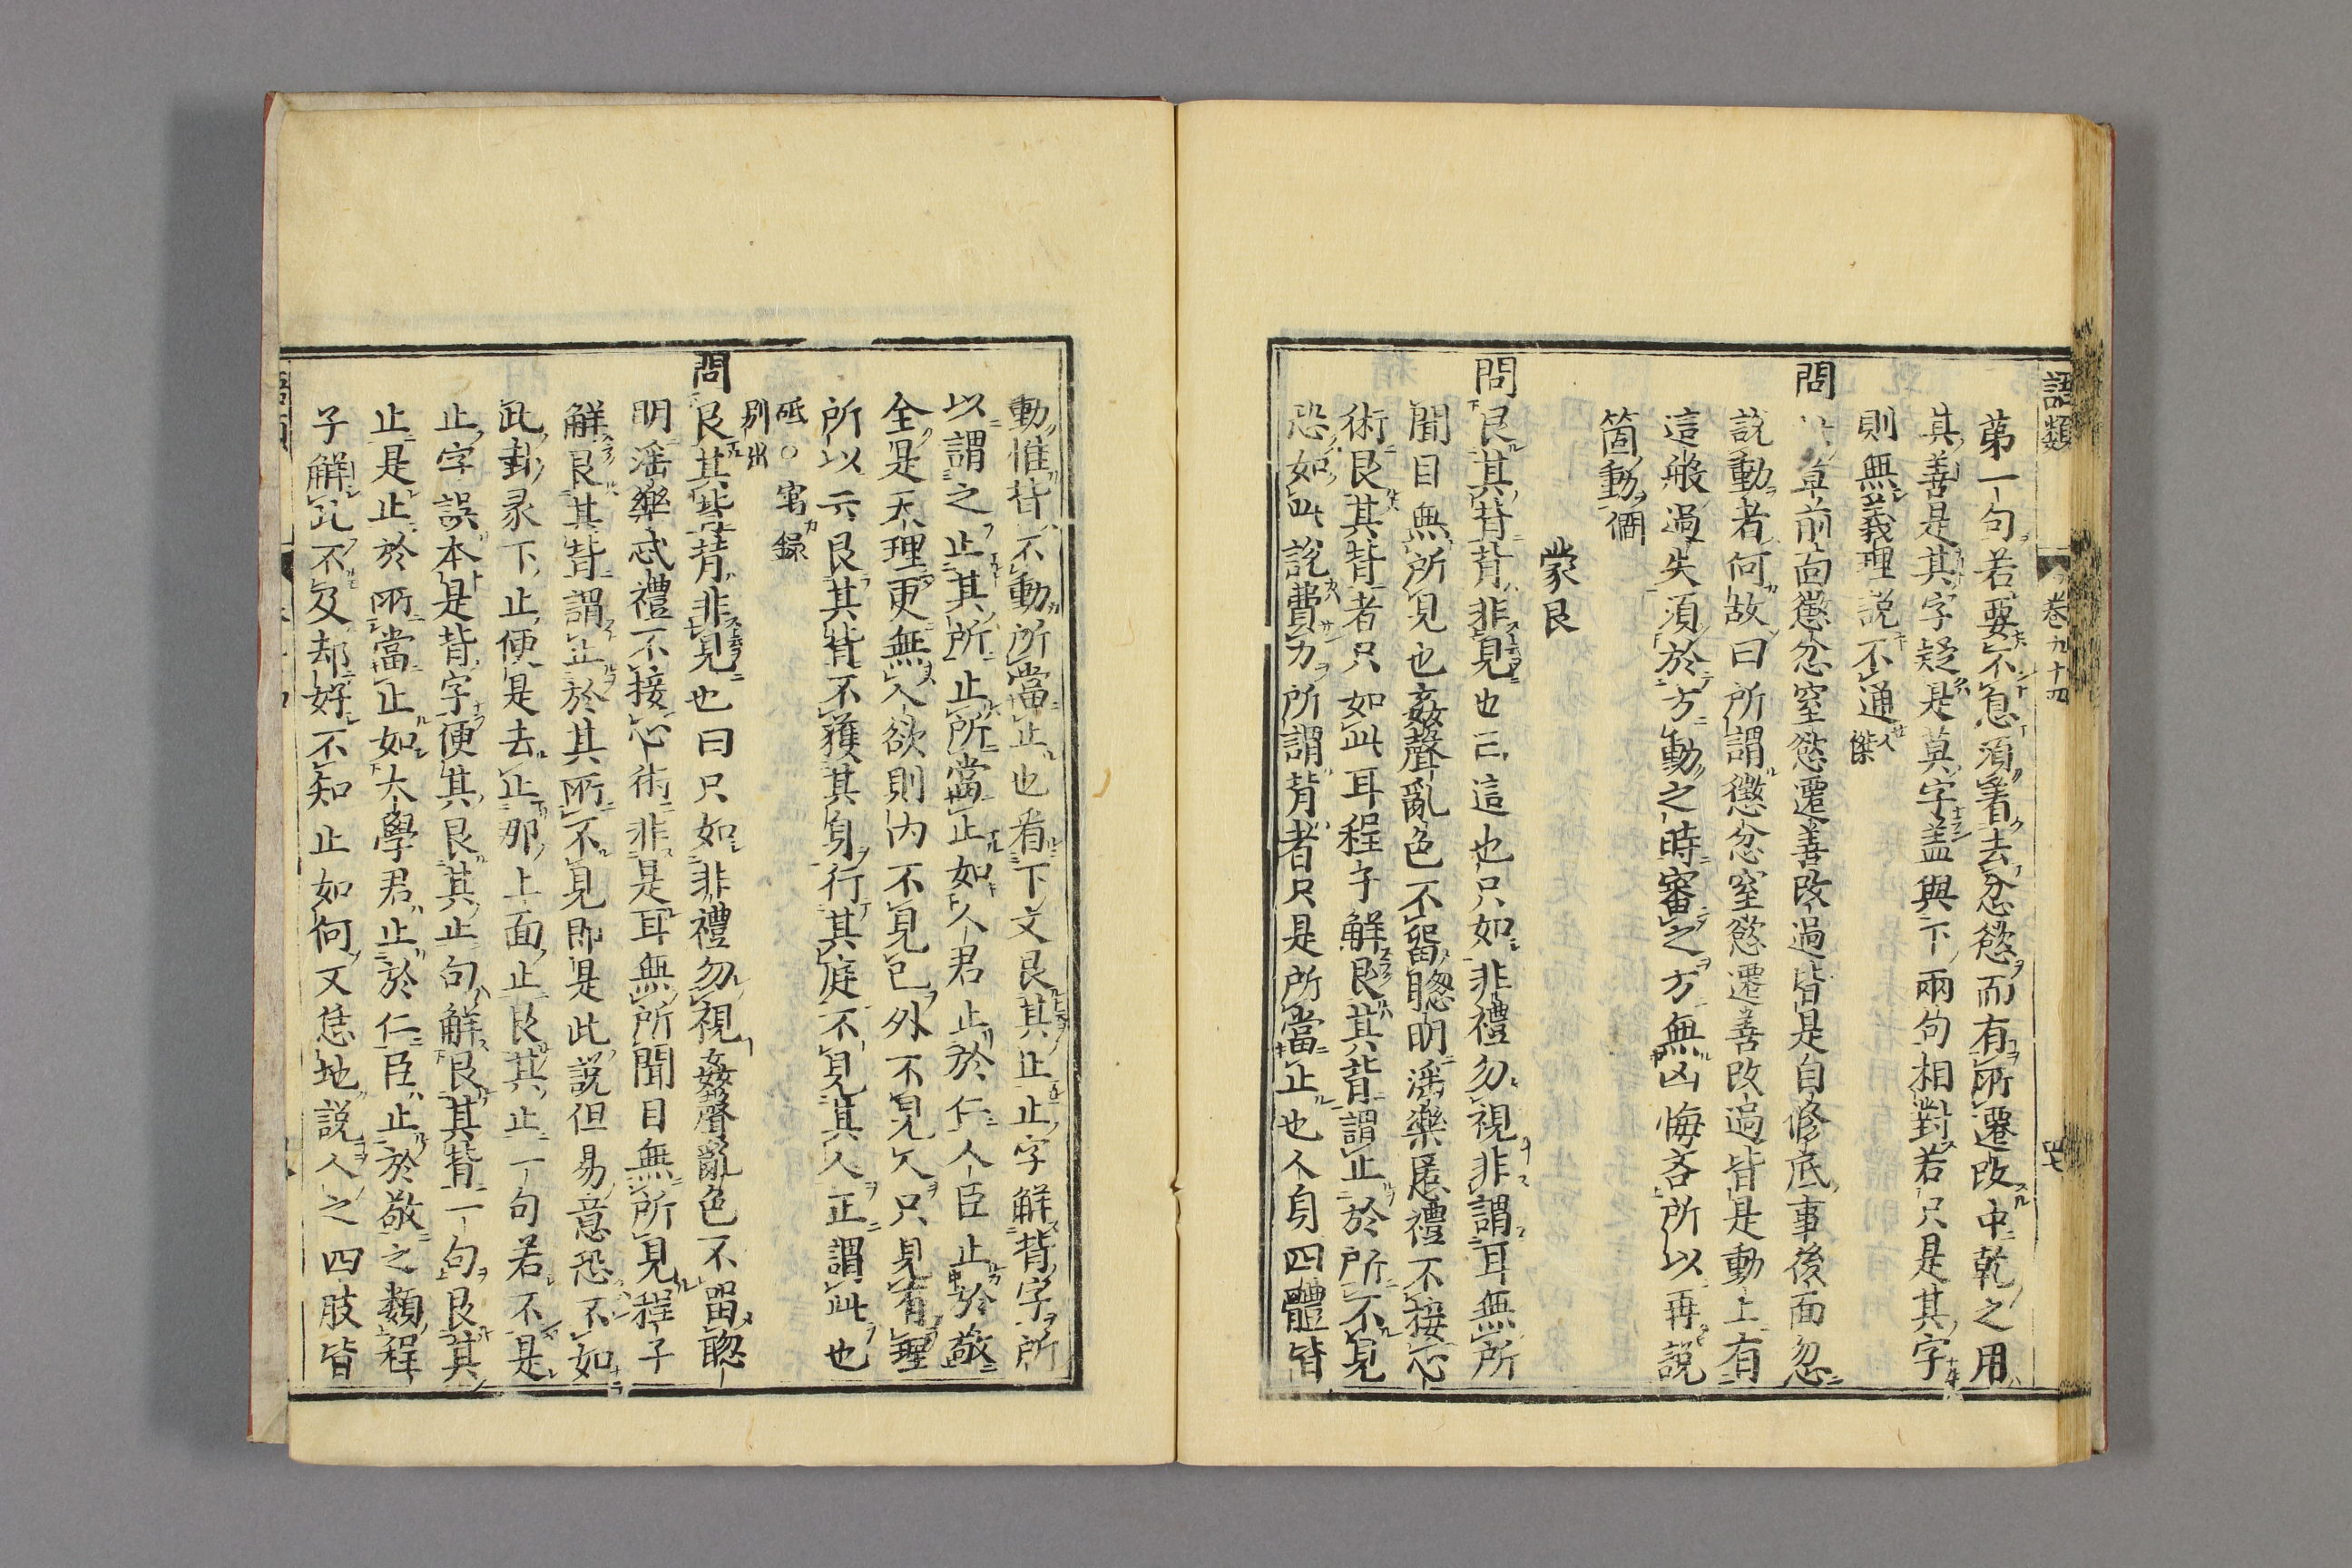 語類 卷九十四 四七
苐一句若要不息須著去忿慾而有所遷改中乾之用
其善是其字疑是莫字盖與下兩句相對若只是其字
則無義理說不通人傑
問 章前面懲忿窒慾遷善改過皆是自修底事後面忽
說動者何故曰所謂懲忿窒慾遷善改過皆是動上有
這般過失須於方動之時審之方無凶悔吝所以再說
箇動僩
蒙艮
問艮其背背非見也曰這也只如非禮勿視非謂耳無所
聞目無所見也姦聲亂色不留聰明淫樂慝禮不接心
術艮其背者只如此耳程子解艮其背謂止於所不見
恐如此說費力所謂背者只是所當止也人身四體皆
動惟背不動所當止也看下文艮其止止字解背字所
以謂之止其所止所當止如人君止於仁人臣止於敬
全是天理更無人欲則內不見己外不見人只見有理
所以云艮其背不獲其身行其庭不見其人正謂此也
砥○㝢録
別出
問艮其背背非見也曰只如非禮勿視姦聲亂色不留聰
明淫樂忒禮不接心術非是耳無所聞目無所見程子
解艮其背謂止於其所不見即是此說但易意恐不如
此卦彖下止便是去止那上面止艮其止一句若不是
止字誤本是背字便其艮其止句解艮其背一句艮其
止是止於所當止如大學君止於仁臣止於敬之類程
子解此不及却好不知止如何又恁地說人之四肢皆